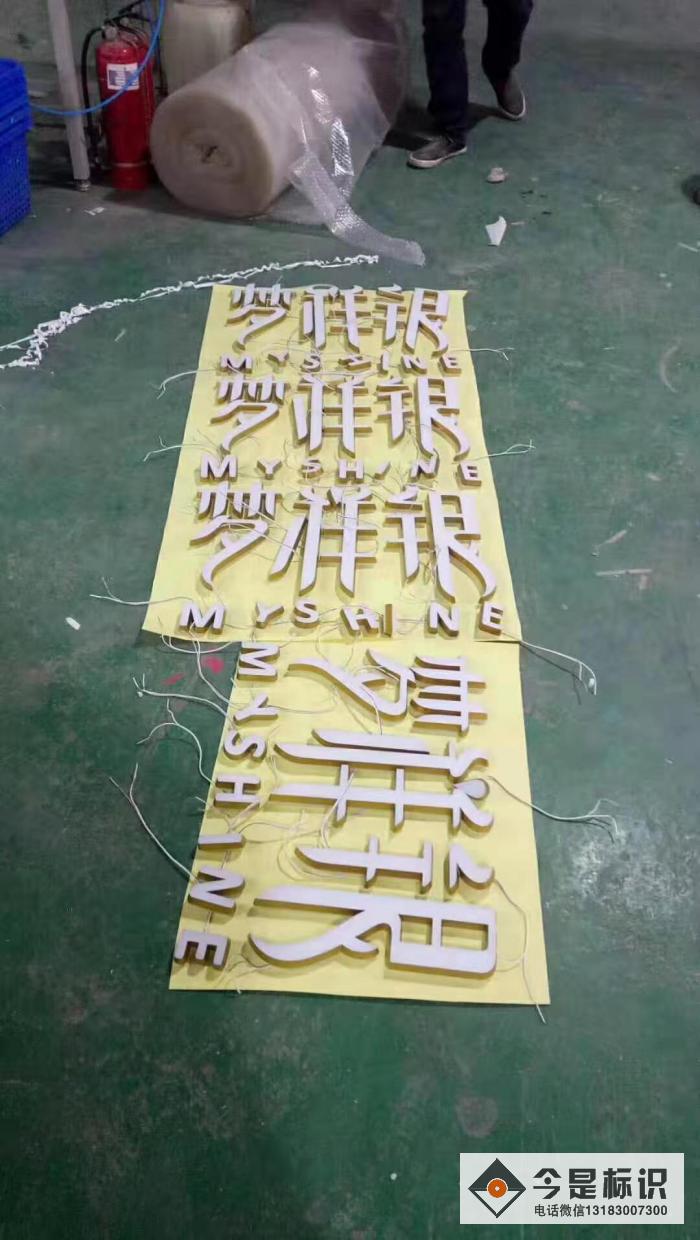 梦祥银
MYSHINE
梦祥银
MYSHINE
梦祥银
MYSHINE
梦祥银
MYSHINE
今是标识
电话微信13183007300